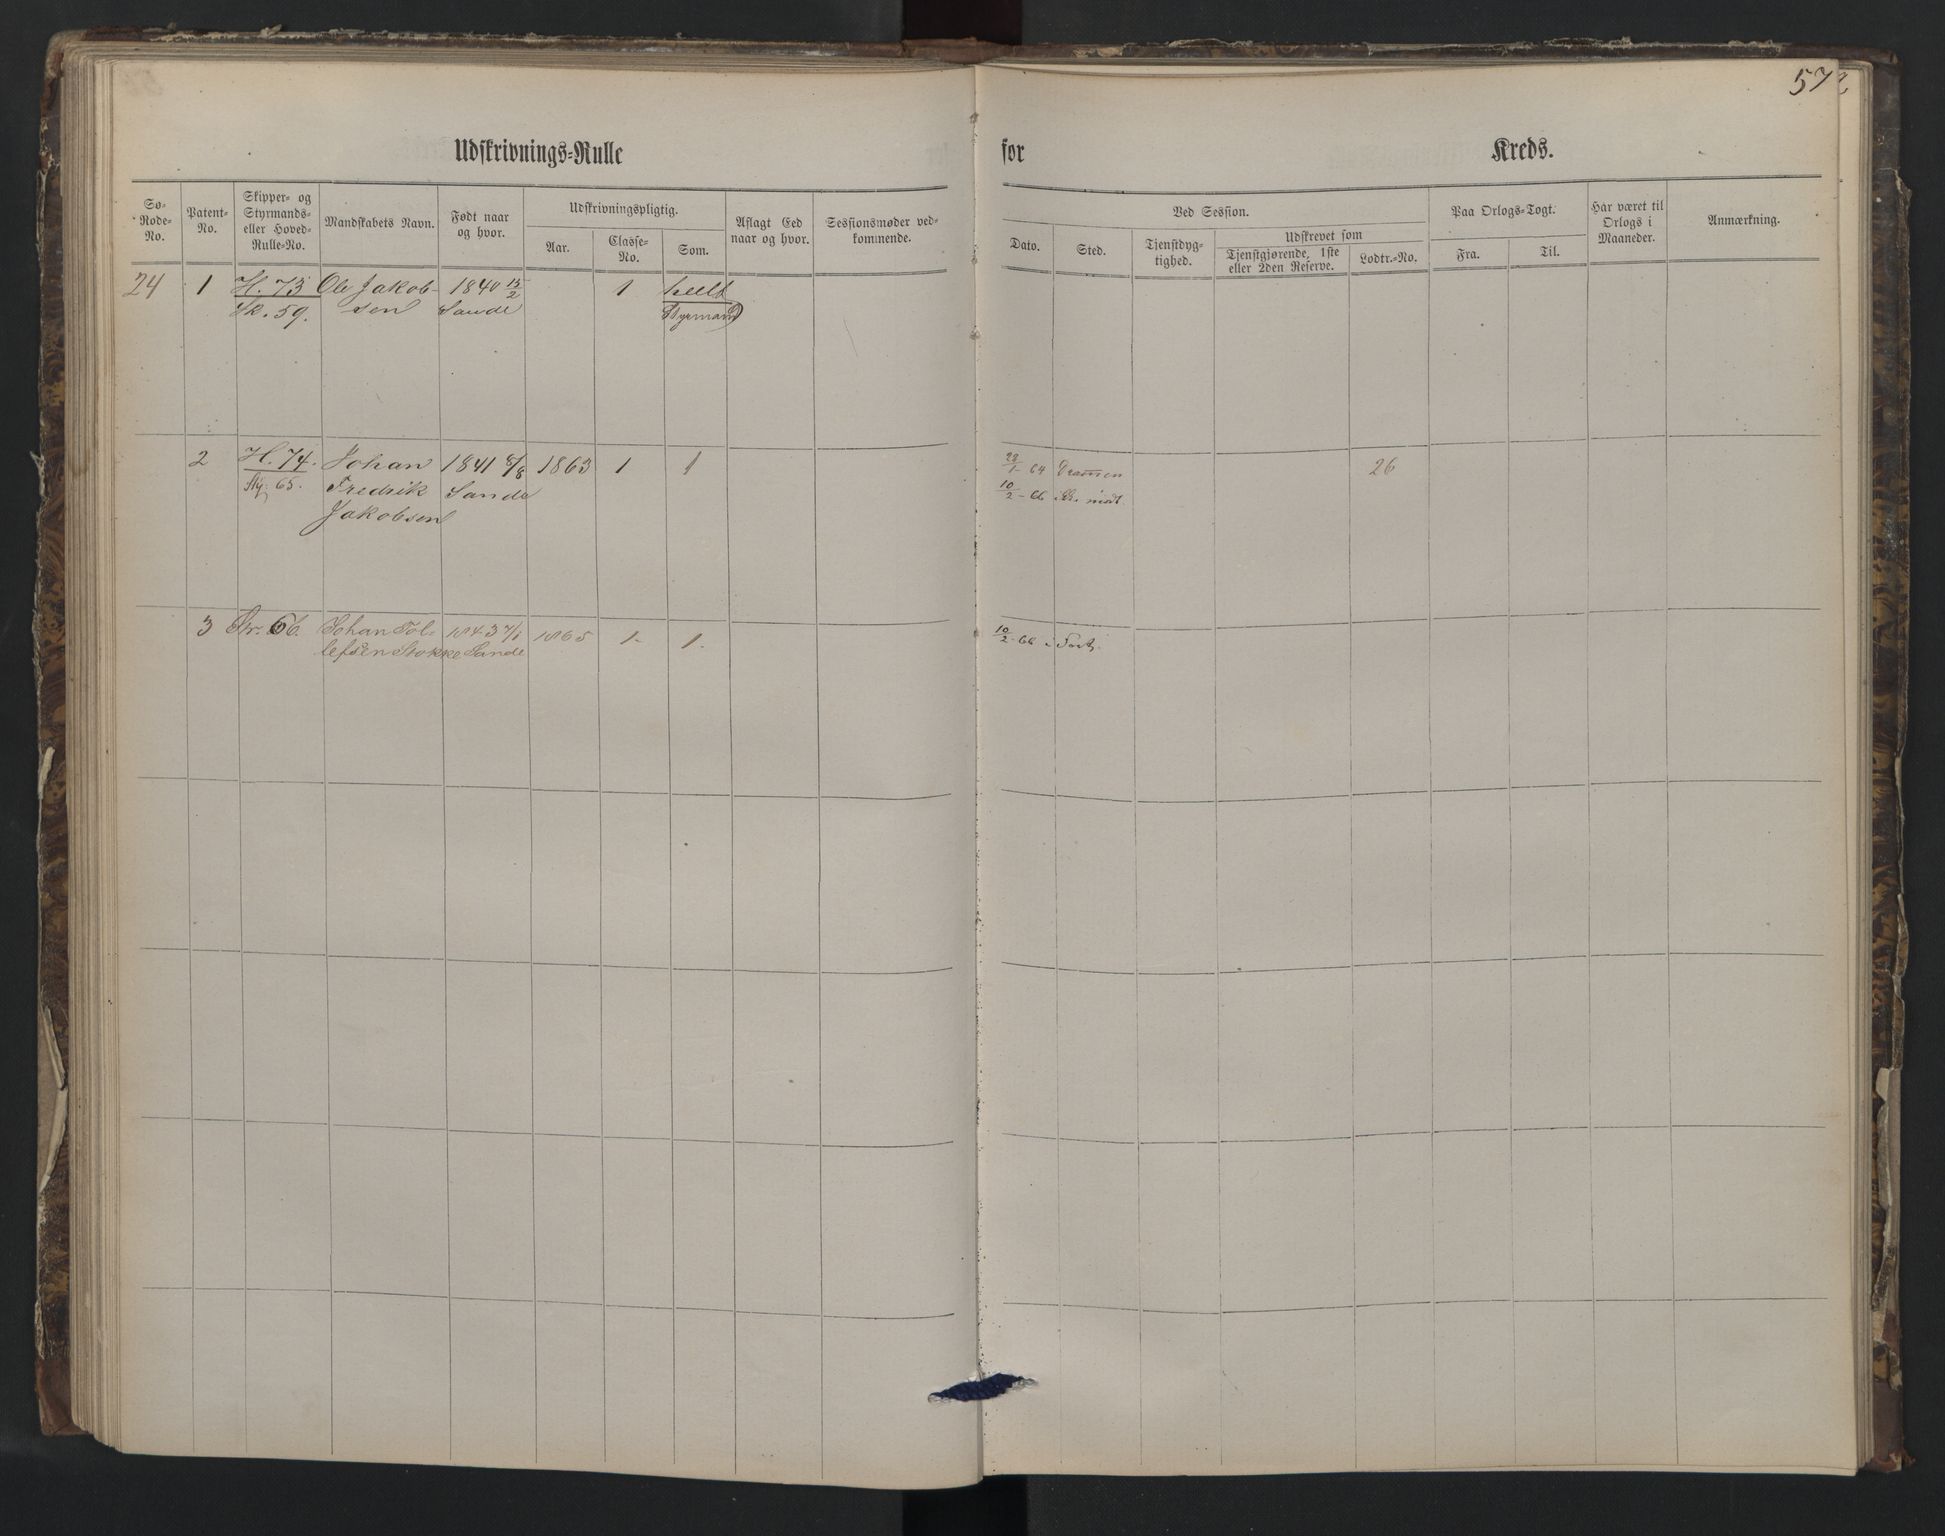 57
Udskrivnings-Rulle for Kreds.
Sø-Rode-No.
Patent-No.
Skipper- og Styrmands- eller Hoved-Rulle-No.
Mandskabets Navn.
Født naar og hvor.
Udskrivningspligtig.
Aar.
Classe-No.
Som.
Aflagt Eed naar og hvor.
Sessionsmøder vedkommende.
Ved Session.
Dato.
Sted.
Tjenstdygtighed.
Udskrevet som
Tjenstgjørende, 1ste eller 2den Reserve.
Lodtr.-No.
Paa Orlogs-Togt.
Fra.
Til.
Har været til Orlogs i Maaneder.
Anmærkning.
24 1 H. 73 Ole Jakob- 1840 15/2 1
Sk. 59. sen Sande Styrmand
2 H. 74. Johan 1841 8/8 1863 1 1 22/1- 64 Dramen 26
Sty. 65. Fredrik Sande 10/2- 66 mødt.
Jakobsen
3 66. Johan Tol- 1843 7/1 1865 1. 1. 10/2- 66
lefsen Stokke Sande